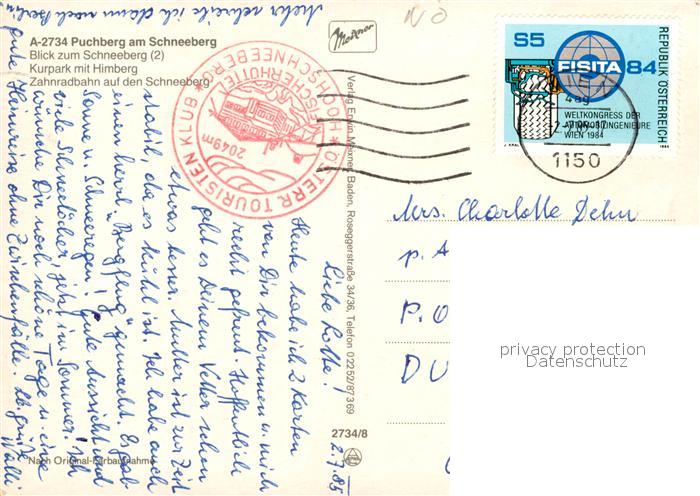 A-2734 Puchberg am Schneeberg
Blick zum Schneeberg (2)
Kurpark mit Himberg
Zahnradbahn auf den Schneeberg
NÖ
Meixner
S5
FISITA 84
REPUBLIK ÖSTERREICH
WELTKONGRESS DER
AUTOMOBILINGENIEURE
WIEN 1984
1150
ÖSTERR. TOURISTENKLUB
FISCHERHÜTTE
HOCHSCHNEEBERG
2049m
Verlag Erwin Meixner, Baden, Roseggerstraße 34/36, Telefon 02252/87369
2734/8
Nach Original-Farbaufnahme
2.7.85
Liebe Lotte!
Heute habe ich 2 Karten
von Dir bekommen u. mich
recht gefreut. Hoffentlich
geht es Deinem Vetter schon
etwas besser. Mutter ist zur Zeit
mobil da es kühl ist. Ich habe auch
einen "Bergflug" gemacht. Es gab
Sonne u. Schneeregen, gute Aussicht und
viele Schneelöcher, jetzt im Sommer. Ich
wünsche Dir noch schöne Tage u. eine
gute Heimreise ohne Zwischenfälle. Lb. Grüße
Mehr schreibe ich dann nach Berlin
Mrs. Charlotte Dehn
p. A
P. O
DU
privacy protection
Datenschutz